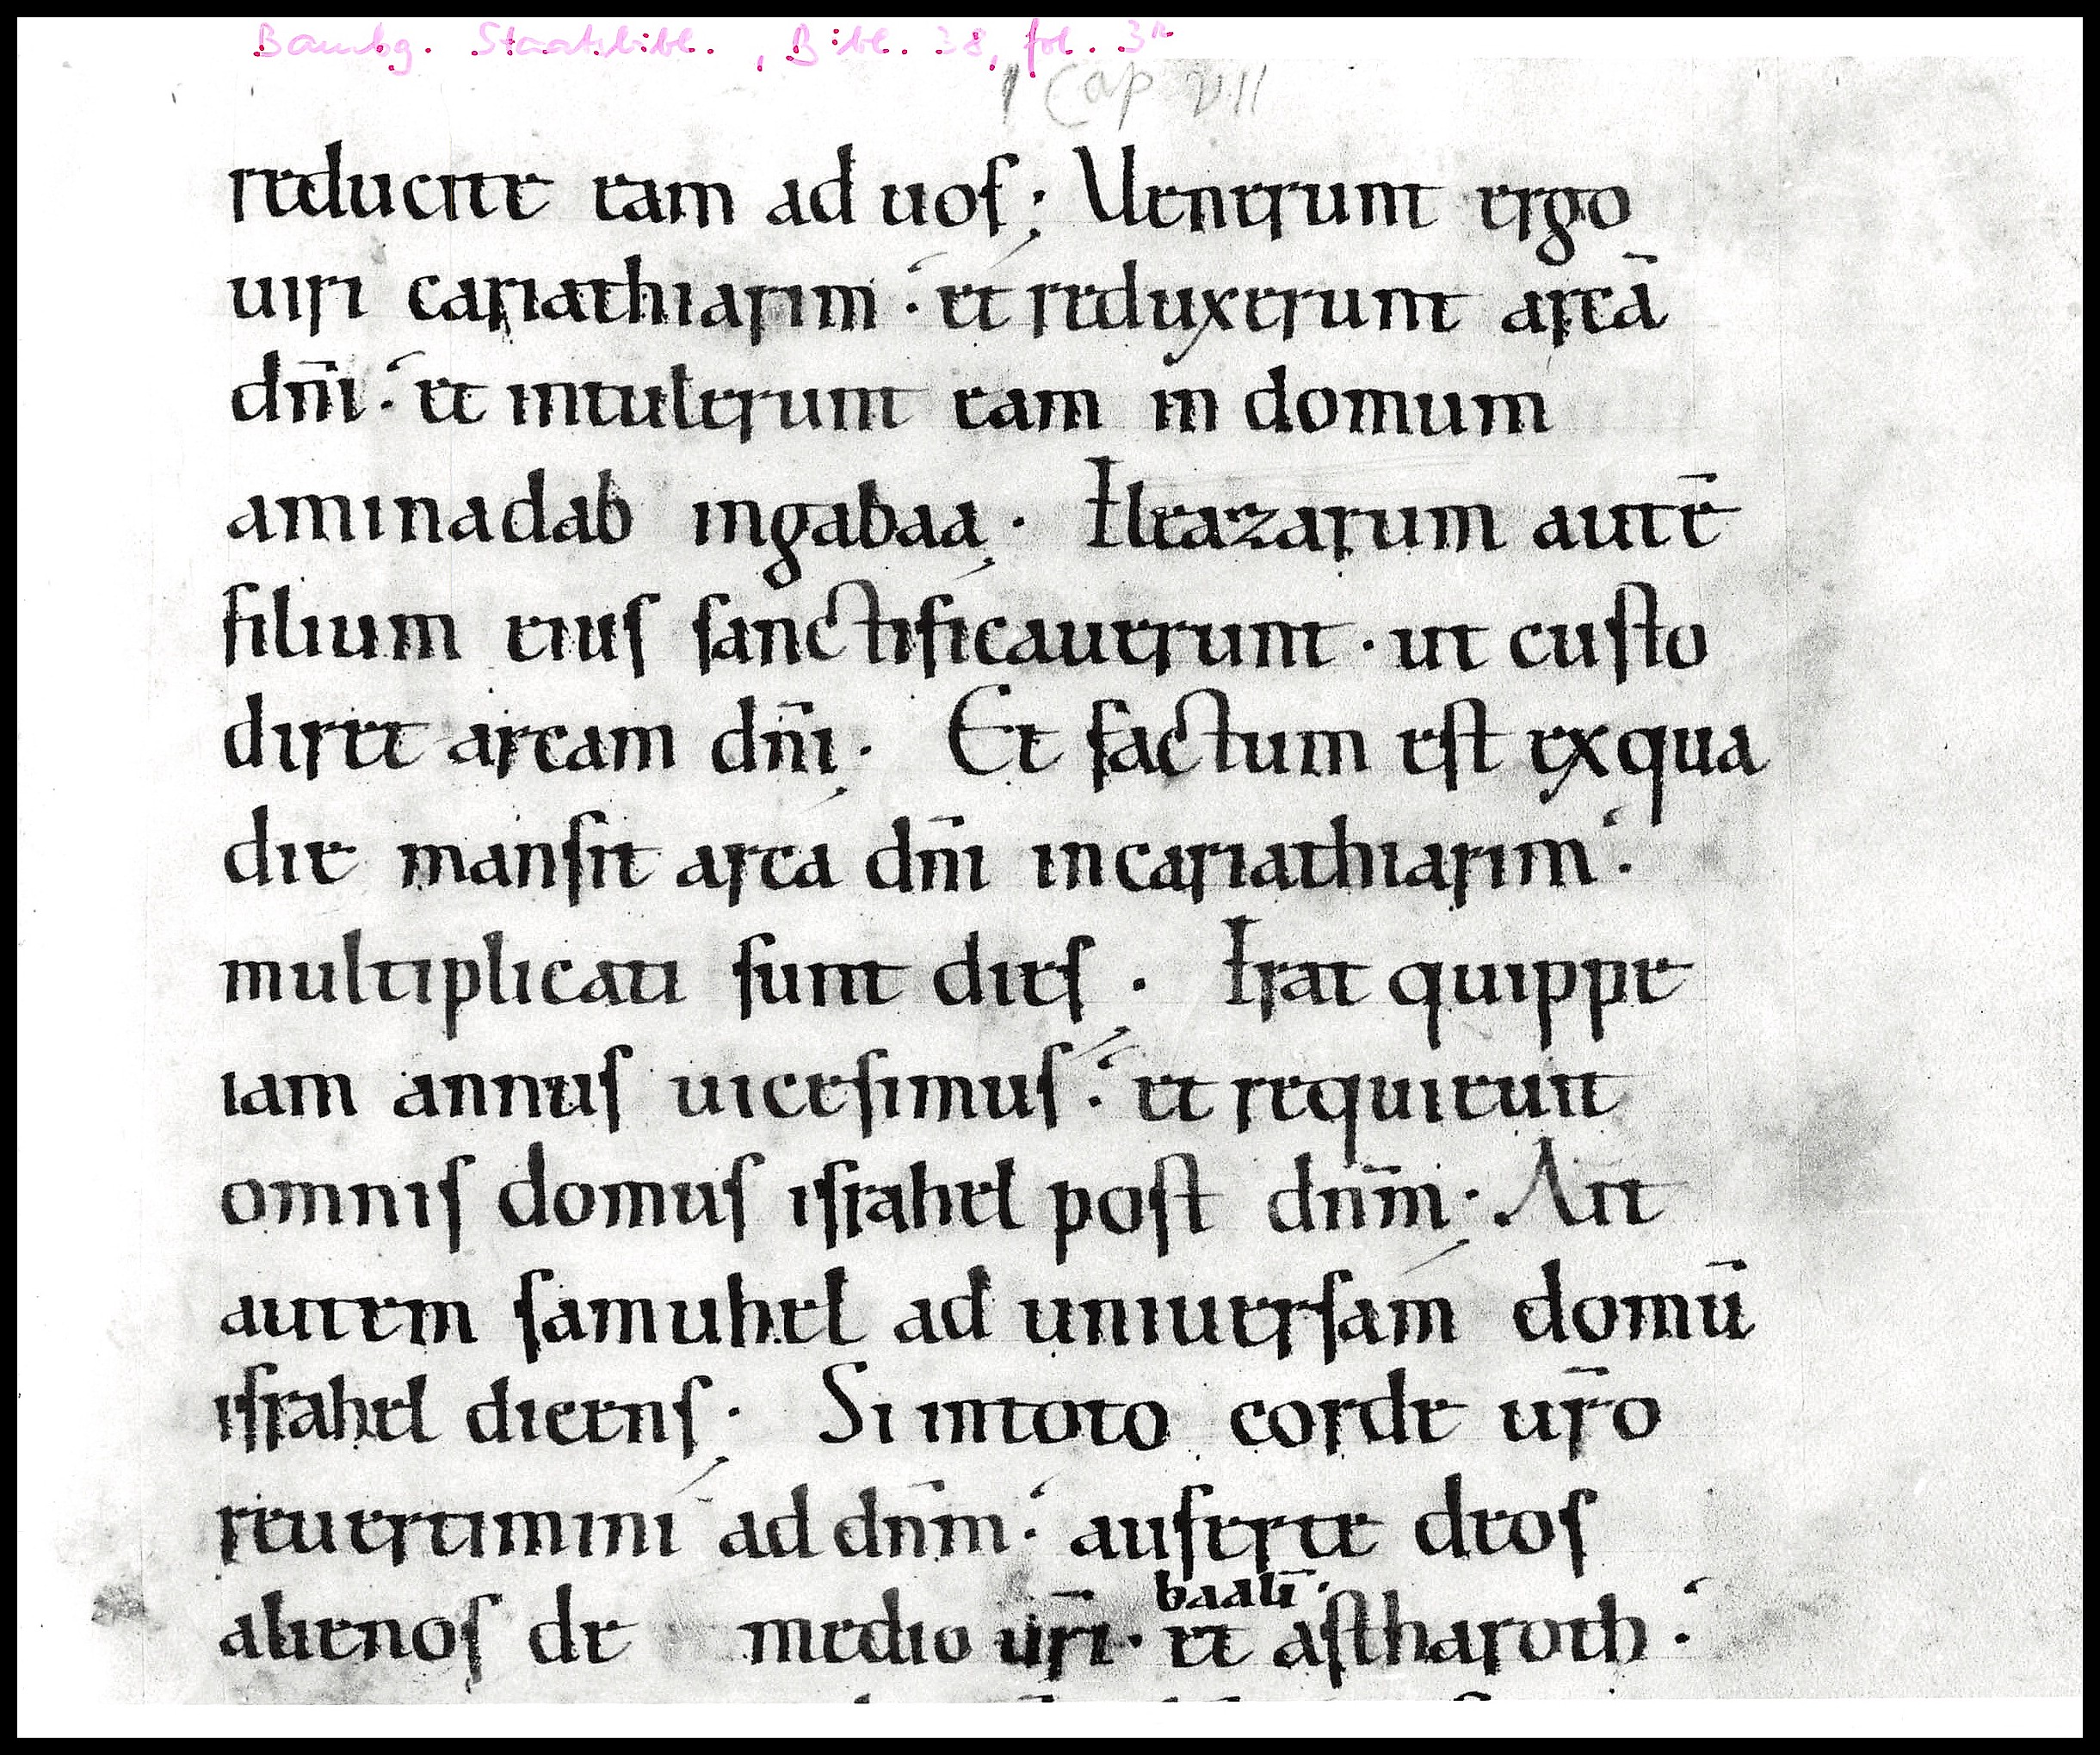 Bambg. Staatsbibl., Bibl. 38, fol. 3r
Cap VII
reducite eam ad uos; Uenerunt ergo
uiri cariathiarim. et reduxerunt arcā
dn̄i. et intulerunt eam in domum
aminadab ingabaa. Eleazarum autē
filium eius sanctificauerunt. ut custo
diret arcam dn̄i. Et factum est exqua
die mansit arca dn̄i incariathiarim.
multiplicati sunt dies. Erat quippe
iam annus uicesimus. et requieuit
omnis domus israhel post dn̄m. Ait
autem samuhel ad uniuersam domū
israhel dicens. Si intoto corde ur̄o
reuertimini ad dn̄m. auferte deos
alienos de medio ur̄i. baalī. et astharoth.